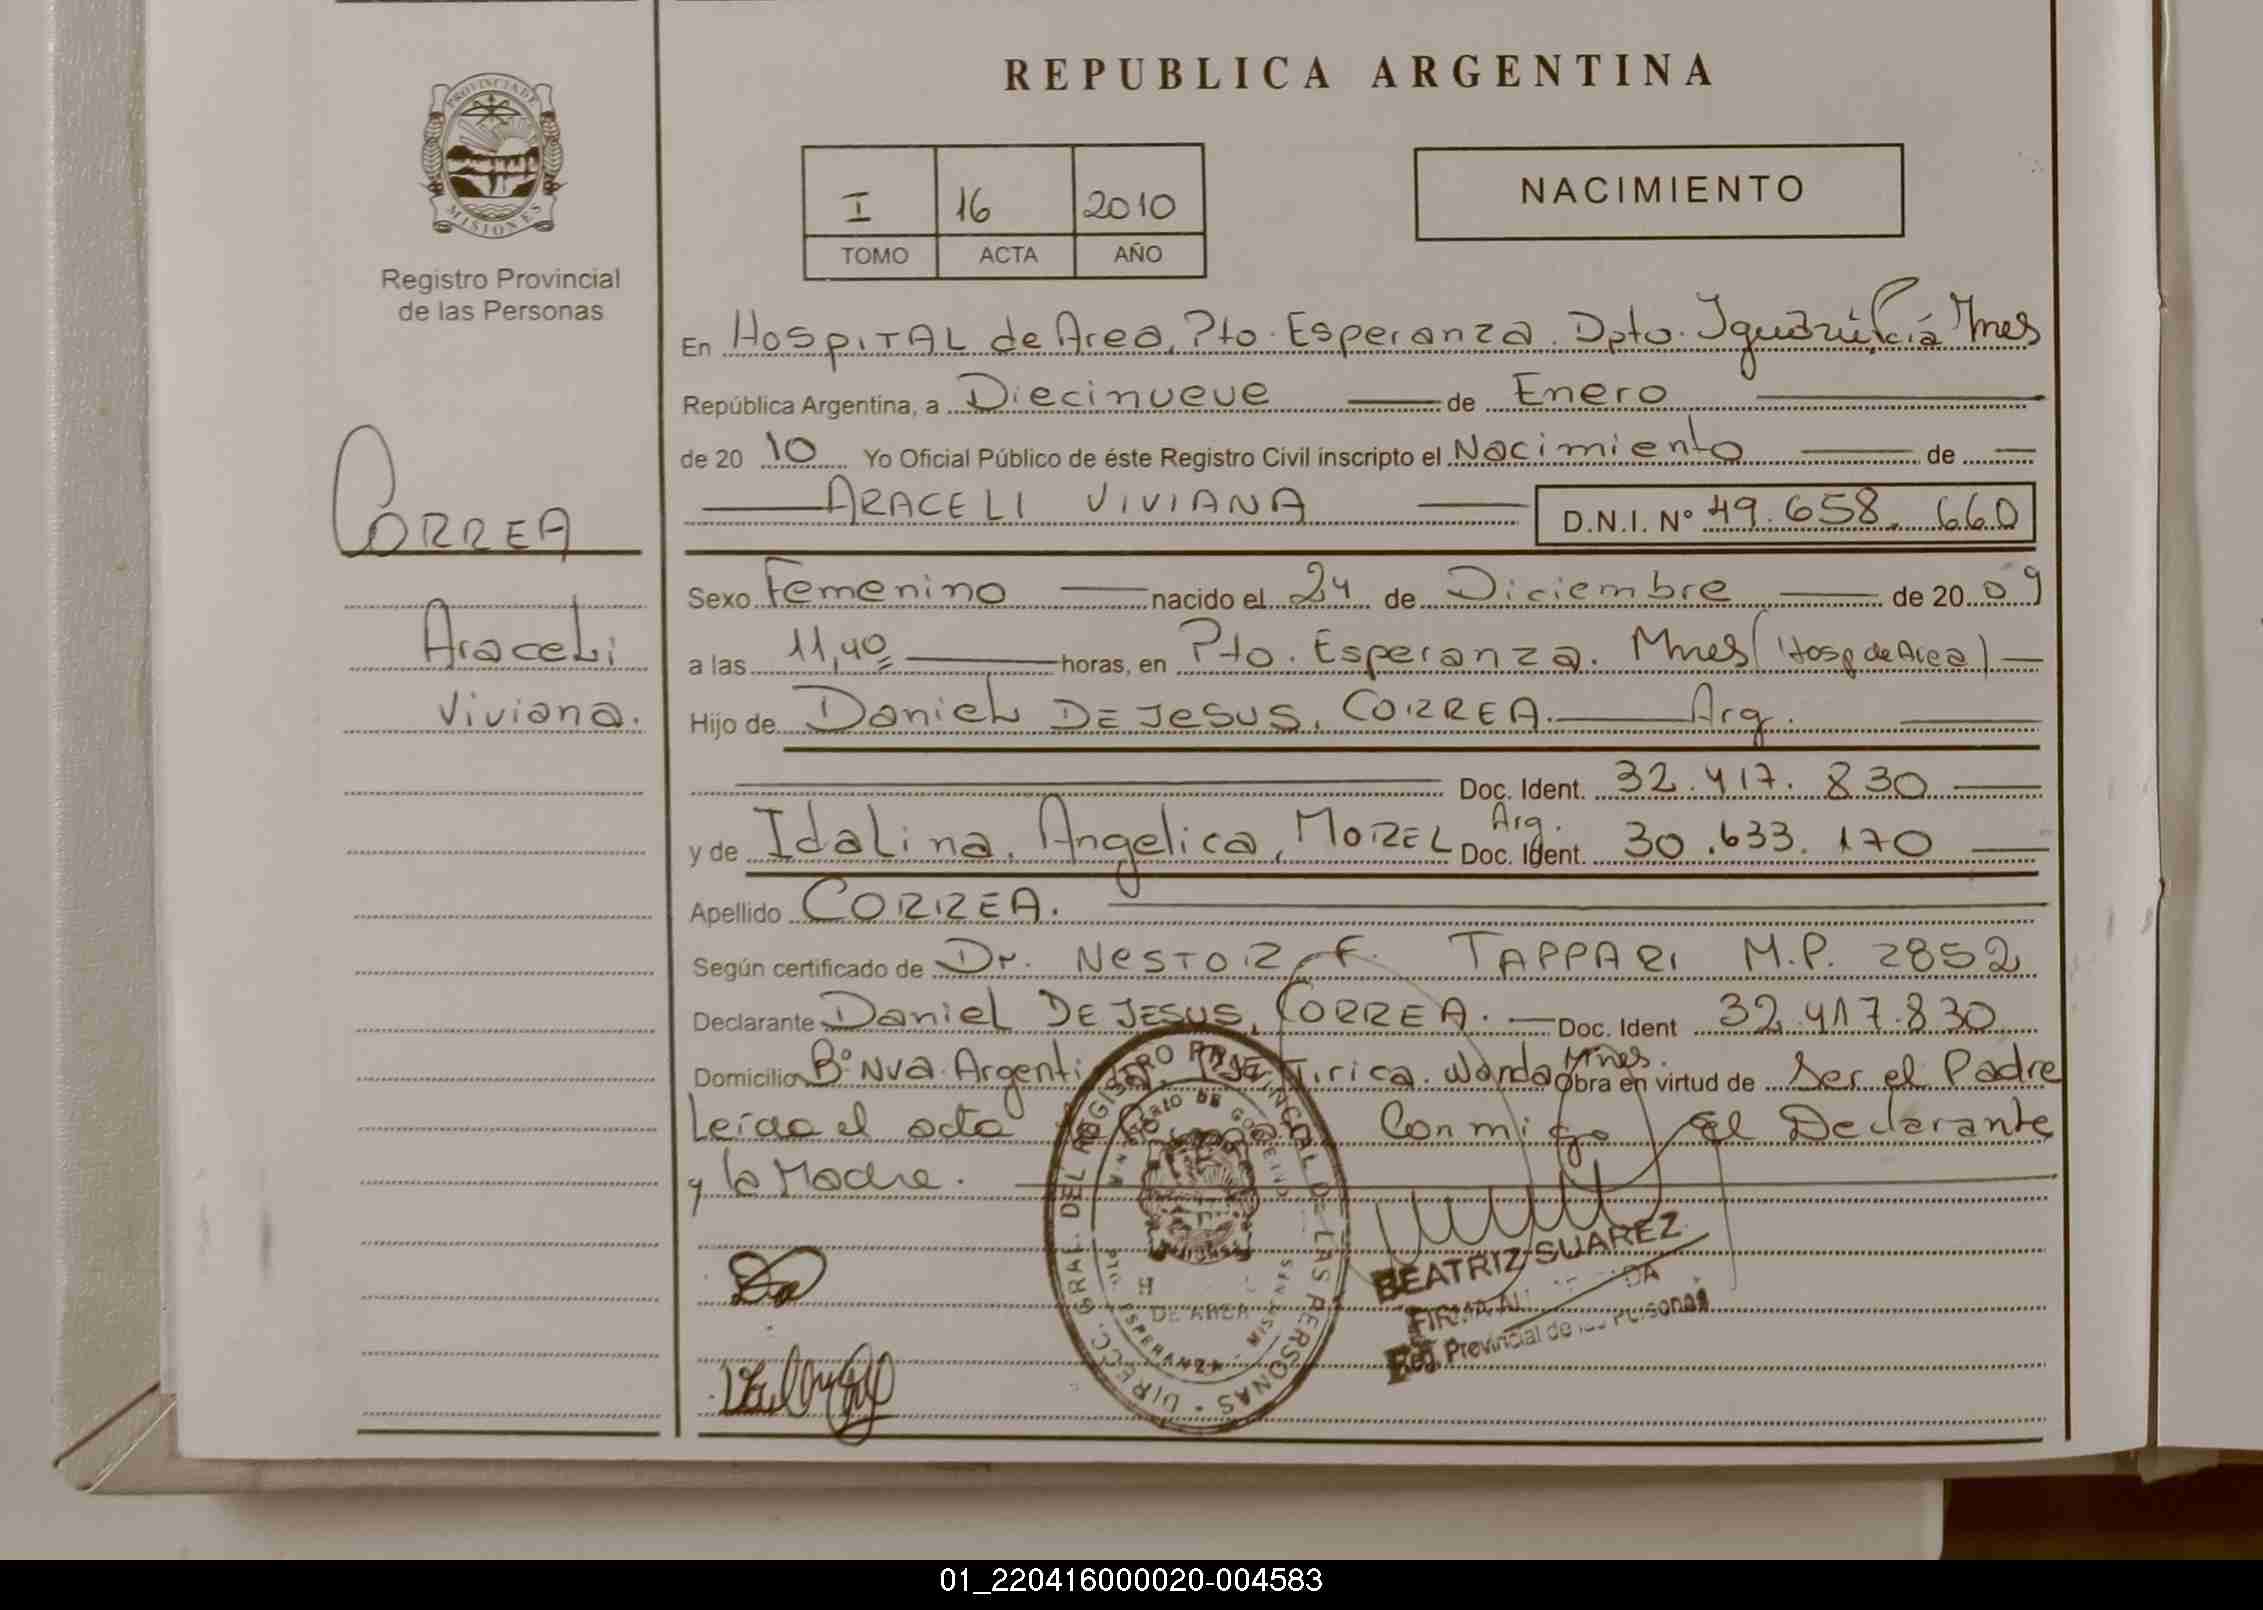 REPUBLICA ARGENTINA
PROVINCIA DE
MISIONES
Registro Provincial
de las Personas
I 16 2010
TOMO ACTA AÑO
NACIMIENTO
En Hospital de Area, Pto. Esperanza. Dpto. Iguazú, Cia Mnes
República Argentina, a Diecinueve de Enero
de 20 10 Yo Oficial Público de éste Registro Civil inscripto el Nacimiento de
ARACELI VIVIANA D.N.I. N° 49.658.660
CORREA
Araceli
Viviana.
Sexo Femenino nacido el 24 de Diciembre de 20 09
a las 11,40 horas, en Pto. Esperanza. Mnes (Hosp de Area)
Hijo de Daniel DE JESUS, CORREA. Arg.
Doc. Ident. 32.417.830
y de Idalina, Angelica, MOREL Arg. Doc. Ident. 30.633.170
Apellido CORREA.
Según certificado de Dr. NESTOR F. TAPPARI M.P. 2852
Declarante Daniel DE JESUS, CORREA. Doc. Ident 32.417.830
Domicilio B° Nva. Argenti Tirica. Wanda Mnes. Obra en virtud de Ser el Padre
Leida el acta Conmigo el Declarante
y la Madre.
DIRECC. GRAL. DEL REGISTRO PROVINCIAL DE LAS PERSONAS
MINISTERIO DE GOBIERNO
DE AREA
PTO. ESPERANZA - MISIONES
BEATRIZ SUAREZ
Reg. Provincial de las Personas
01_220416000020-004583